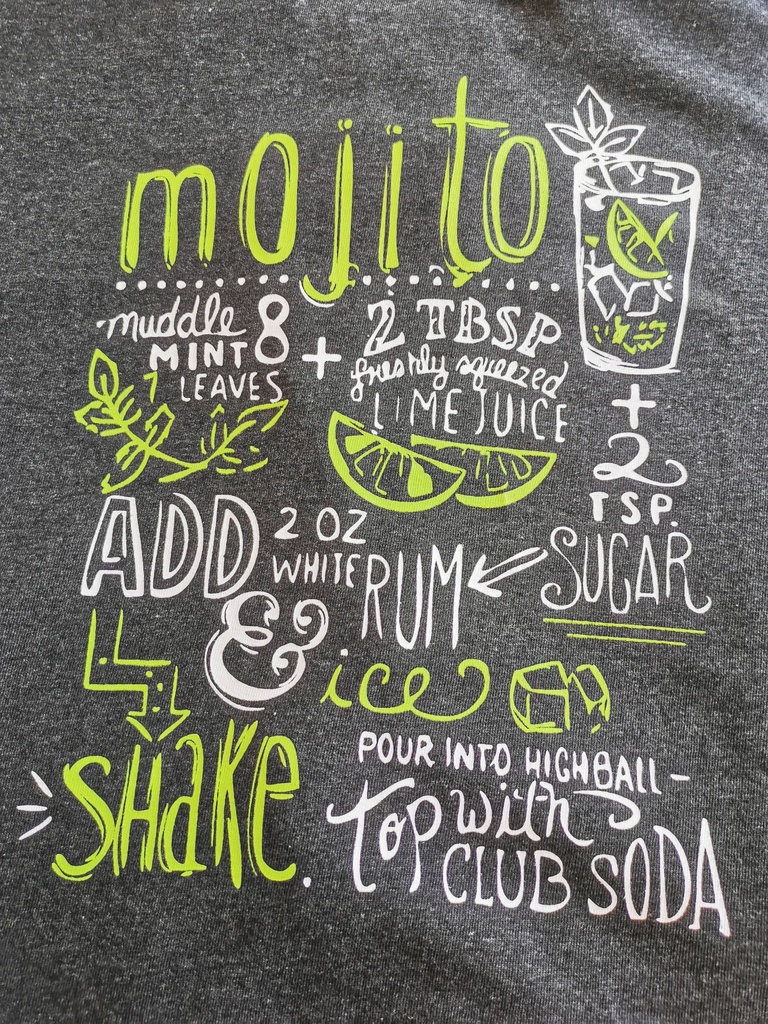 mojito
muddle 8
MINT
LEAVES
+
2 TBSP
freshly squeezed
LIME JUICE
+
2
TSP.
SUGAR
ADD 2 OZ
WHITE RUM
& ice
SHAKE.
POUR INTO HIGHBALL-
TOP with
CLUB SODA